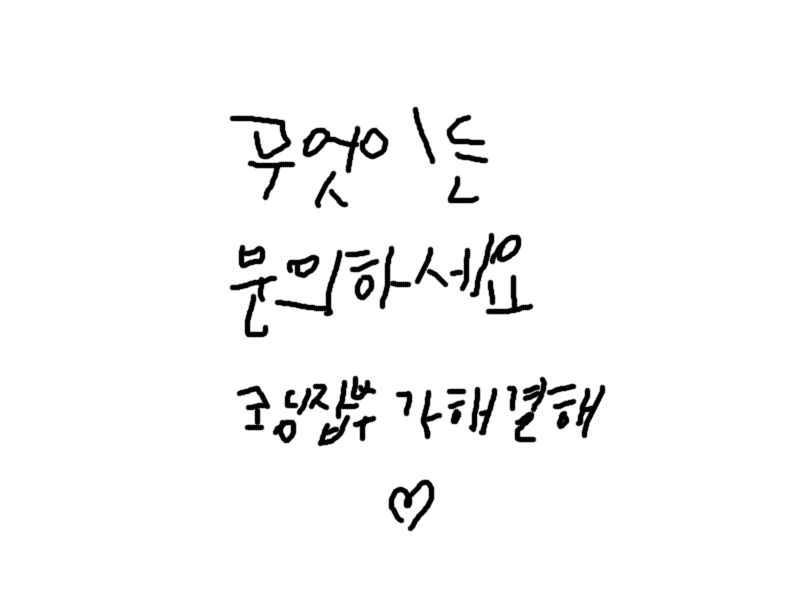 무엇이든
문의하세요
고딩잡부 가해결해
♡